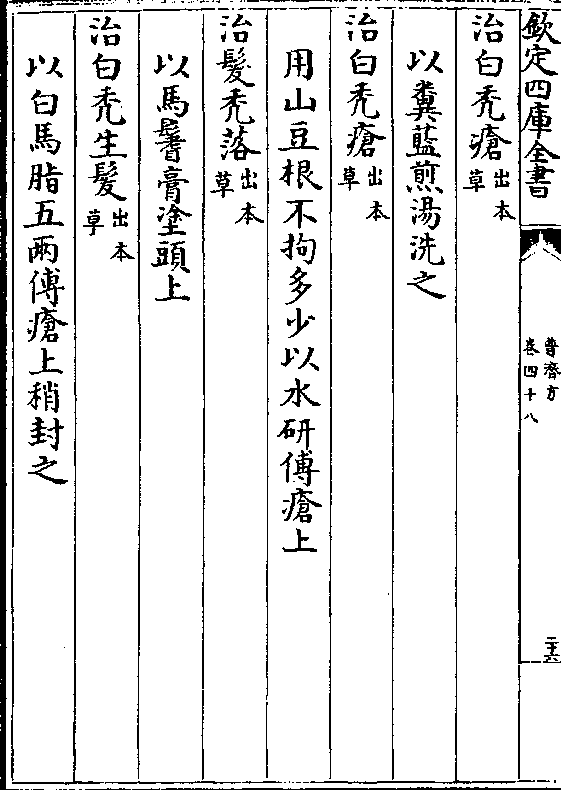 欽定四庫全書
普濟方
卷四十八
二十六
治白秃瘡出本草
以糞藍煎湯洗之
治白秃瘡出本草
用山豆根不拘多少以水研傅瘡上
治髮秃落出本草
以馬鬐膏塗頭上
治白秃生髮出本草
以白馬脂五兩傅瘡上稍封之